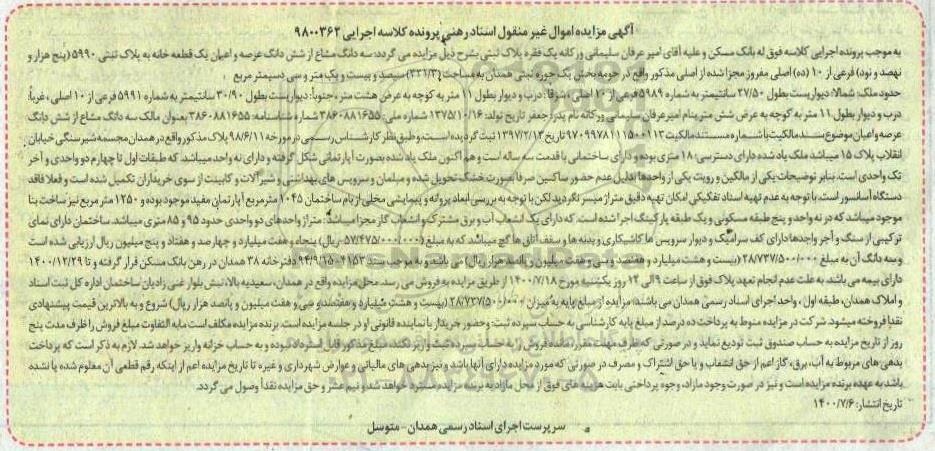 آگهی مزایده اموال غیر منقول اسناد رهنی پرونده کلاسه اجرایی ۹۸۰۰۳۶۲
به موجب پرونده اجرایی کلاسه فوق له بانک مسکن و علیه آقای امیر عرفان سلیمانی ورکانه یک فقره پلاک ثبتی بشرح ذیل مزایده می گردد: سه دانگ مشاع از شش دانگ عرصه و اعیان یک قطعه خانه به پلاک ثبتی ۵۹۹۰ (پنج هزار و
نهصد و نود) فرعی از ۱۰ (ده) اصلی مفروز مجزا شده از اصلی مذکور واقع در حومه بخش یک حوزه ثبتی همدان به مساحت (۳۲۱/۳) سیصد و بیست و یک متر و سی دسیمتر مربع
حدود ملک: شمالا: دیواریست بطول ۲۷/۵۰ سانتیمتر به شماره ۵۹۸۹ فرعی از ۱۰ اصلی، شرقا: درب و دیوار بطول ۱۱ متر به کوچه به عرض هشت متر، جنوباً: دیواریست بطول ۳۰/۹۰ سانتیمتر به شماره ۵۹۹۱ فرعی از ۱۰ اصلی، غرباً:
درب و دیوار بطول ۱۱ متر به کوچه به عرض شش متر بنام امیر عرفان سلیمانی ورکانه نام پدر: جعفر تاریخ تولد: ۱۳۷۵/۱۰/۱۶ شماره ملی: ۳۸۶۰۸۸۱۶۵۵ شماره شناسنامه: ۳۸۶۰۸۸۱۶۵۵ بعنوان مالک سه دانگ مشاع از شش دانگ
عرصه و اعیان موضوع سند مالکیت با شماره مستند مالکیت ۹۷۰۹۹۷۸۱۱۱۵۰۰۱۱۳ تاریخ ۱۳۹۷/۲/۱۳ ثبت گردیده است. و طبق نظر کارشناس رسمی در مورخه ۹۸/۶/۱۱ پلاک مذکور واقع در همدان مجسمه شیر سنگی خیابان
انقلاب پلاک ۱۵ میباشد ملک یاد شده دارای دسترسی: ۱۸ متری بوده و دارای ساختمانی با قدمت سه ساله است و هم اکنون ملک یاد شده بصورت آپارتمانی شکل گرفته و دارای نه واحد میباشد که طبقات اول تا چهارم دو واحدی و آخر
تک واحدی است. بنابر توضیحات یکی از مالکین و رویت یکی از واحدها بدلیل عدم حضور ساکسین صرفا بصورت خشک تحویل شده و مبلمان و سرویس های بهداشتی و شیر آلات و کابینت از سوی خریداران تکمیل شده است و فعلا فاقد
دستگاه آسانسور است. با توجه به عدم تهیه اسناد تفکیکی امکان تهیه دقیق متراژ میسر نگردید لکن با توجه به بررسی ابعاد پروانه و پیمایشی محلی از بام ساختمان ۱۰۴۵ مترمربع آپارتمان مفید موجود بوده و ۱۲۵۰ متر مربع نیز ساخت بنا
موجود میباشد که در نه واحد و پنج طبقه مسکونی و یک طبقه پارکینگ اجرا شده است. که دارای یک انشعاب آب و برق مشترک و انشعاب گاز مجزا میباشد: متراژ واحدهای دو واحدی حدود ۹۵ و ۸۵ متری میباشد. ساختمان دارای نمای
ترکیبی از سنگ و آجر واحدها دارای کف سرامیک و دیوار سرویس ها کاشیکاری و بدنه ها و سقف اتاق ها گچ میباشد که به مبلغ (۵۷/۴۷۵/۰۰۰/۰۰۰ ریال) پنجاه و هفت میلیارد و چهارصد و هفتاد و پنج میلیون ریال ارزیابی شده است
و سه دانگ آن به مبلغ ۲۸/۷۳۷/۵۰۰/۰۰۰ (بیست و هشت میلیارد و هفتصد و سی و هفت میلیون و پانصد هزار ریال) می باشد و به موجب سند ۴۱۵۳-۹۴/۹/۱۵ دفترخانه ۳۸ همدان در رهن بانک مسکن قرار گرفته و تا ۱۴۰۰/۱۲/۲۹
دارای بیمه می باشد. به علت عدم انجام تعهد پلاک فوق از ساعت ۹ الی ۱۲ روز یکشنبه مورخ ۱۴۰۰/۷/۱۸ از طریق مزایده به فروش می رسد. محل مزایده واقع در همدان، سعیدیه بالا، نبش بلوار غنی زادیان ساختمان اداره کل ثبت اسناد
و املاک همدان، طبقه اول، واحد اجرای اسناد رسمی همدان می باشد: مزایده از مبلغ پایه به میزان ۲۸/۷۳۷/۵۰۰/۰۰۰ (بیست و هشت میلیارد و هفتصد و سی و هفت میلیون و پانصد هزار ریال) شروع و به بالاترین قیمت پیشنهادی
نقدا فروخته میشود. شرکت در مزایده منوط به پرداخت ده درصد از مبلغ پایه کارشناسی به حساب سپرده ثبت و حضور خریدار یا نماینده قانونی او در جلسه مزایده است. برنده مزایده مکلف است مابه التفاوت مبلغ فروش را ظرف مدت پنج
روز از تاریخ مزایده به حساب صندوق ثبت تودیع نماید و در صورتی که ظرف مهلت مقرر مانده فروش را به حساب سپرده ثبت واریز نکند، مبلغ مذکور قابل استرداد نبوده و به حساب خزانه واریز خواهد شد. لازم به ذکر است که پرداخت
بدهی های مربوط به آب، برق، گاز اعم از حق انشعاب و یا حق اشتراک و مصرف در صورتی که مورد مزایده دارای آنها باشد و نیز بدهی های مالیاتی و عوارض شهرداری و غیره تا تاریخ مزایده اعم از اینکه رقم قطعی آن معلوم شده یا نشده
باشد به عهده برنده مزایده است و نیز در صورت وجود مازاد، وجوه پرداختی بابت هزینه های فوق از محل مازاد به برنده مزایده مسترد خواهد شد و نیم عشر و حق مزایده نقداً وصول می گردد.
تاریخ انتشار: ۱۴۰۰/۷/۶
سرپرست اجرای اسناد رسمی همدان - متوسل